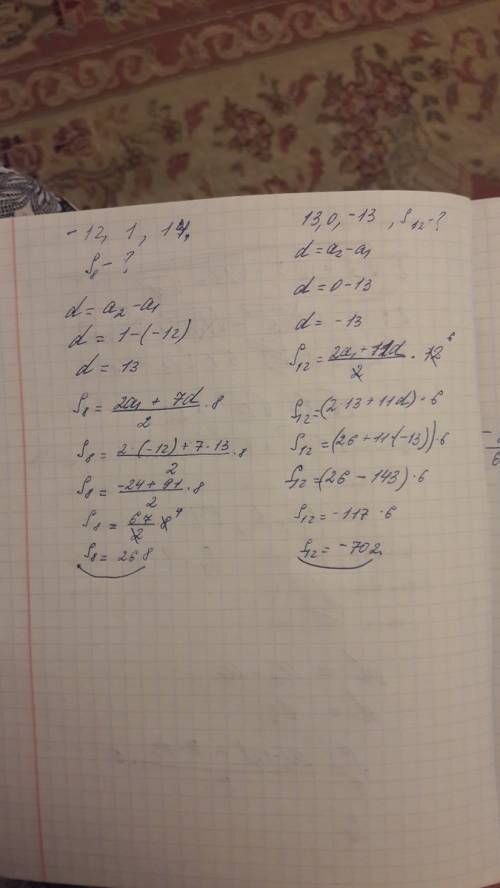 -12, 1, 14,
S₈ - ?
d = a₂ - a₁
d = 1-(-12)
d = 13
S₈ = (2a₁ + 7d)/2 · 8
S₈ = (2·(-12) + 7·13)/2 · 8
S₈ = (-24 + 91)/2 · 8
S₈ = 67/2 · 8 4
S₈ = 268
13, 0, -13 , S₁₂ - ?
d = a₂ - a₁
d = 0 - 13
d = -13
S₁₂ = (2a₁ + 11d)/2 · 12 6
S₁₂ = (2·13 + 11d) · 6
S₁₂ = (26 + 11·(-13)) · 6
S₁₂ = (26 - 143) · 6
S₁₂ = -117 · 6
S₁₂ = -702